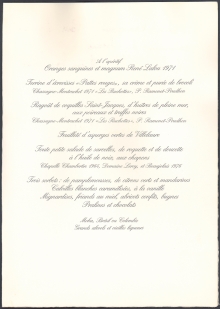 A l'apéritif
Oranges sanguines et magnum Paul Sadou 1971
Terrine d'écrevisses « Pattes rouges », sa crème et purée de brocoli
Chassagne-Montrachet 1971 « La Ruchotte », P. Ramonet-Prudhon
Ragoût de coquilles Saint-Jacques, d'huîtres de pleine mer,
aux poireaux et truffes noires
Chassagne-Montrachet 1971 « La Ruchotte », P. Ramonet-Prudhon
Feuilleté d'asperges vertes de Villelaure
Toute petite salade de morilles, de roquette et de doucette
à l'huile de noix, aux chapons
Chapelle Chambertin 1965, Domaine
Trois sorbets : de pamplemousses, de citrons verts et mandarines
blanches caramélisées, à la vanille
Mignardises, friands au miel, abricots confits, nougat
Pralines et chocolats
Moka, Brésil ou Colombie
Grands alcools et vieilles liqueurs